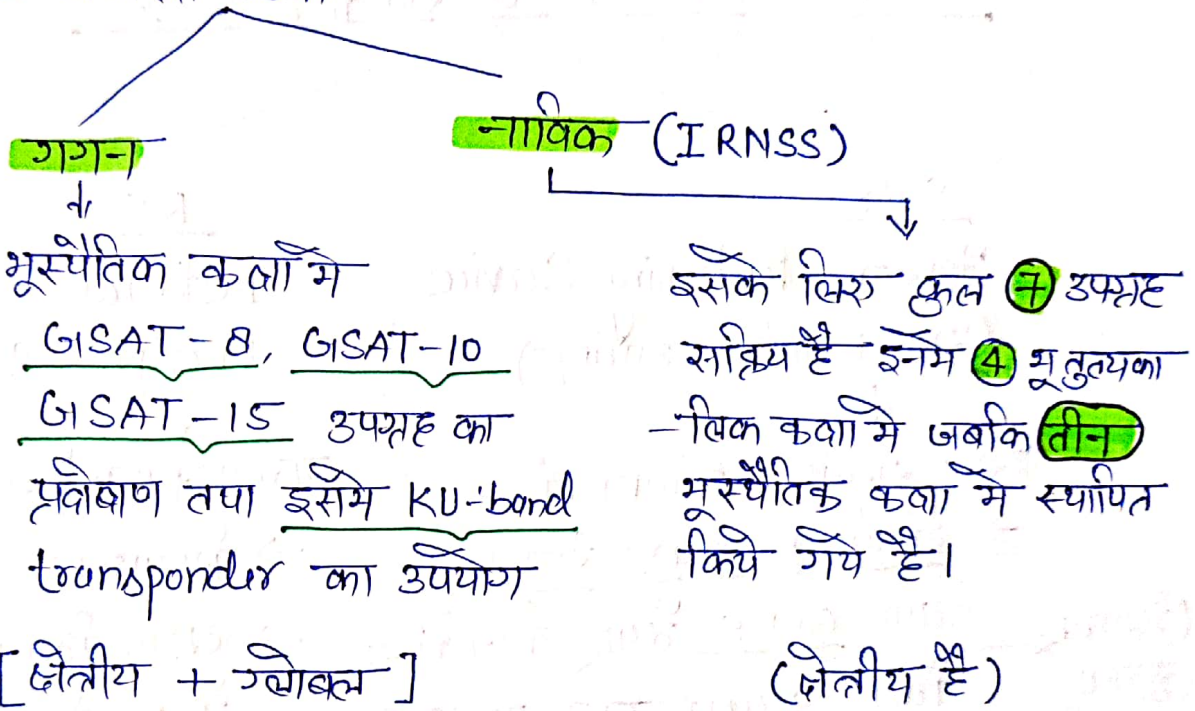 गगन
भूस्थैतिक कक्षा में
GSAT-8, GSAT-10
GSAT-15 उपग्रह का
प्रक्षेपण तथा इसमें KU-band
transponder का उपयोग
[क्षेत्रीय + ग्लोबल]
नाविक (IRNSS)
इसके लिए कुल 7 उपग्रह
सक्रिय है इनमें 4 भू तुल्यका
-लिक कक्षा में जबकि तीन
भूस्थैतिक कक्षा में स्थापित
किये गये है।
(क्षेत्रीय है)